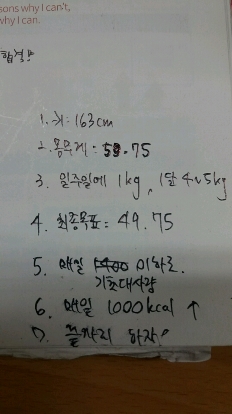 sons why I can't,
why I can.
합격!!
1. 키: 163cm
2. 몸무게: 59.75
3. 일주일에 1kg, 1달 4~5kg
4. 최종목표: 49.75
5. 매일 1400 이하로.
기초대사량
6. 매일 1000kcal ↑
7. 끝까지 하자!